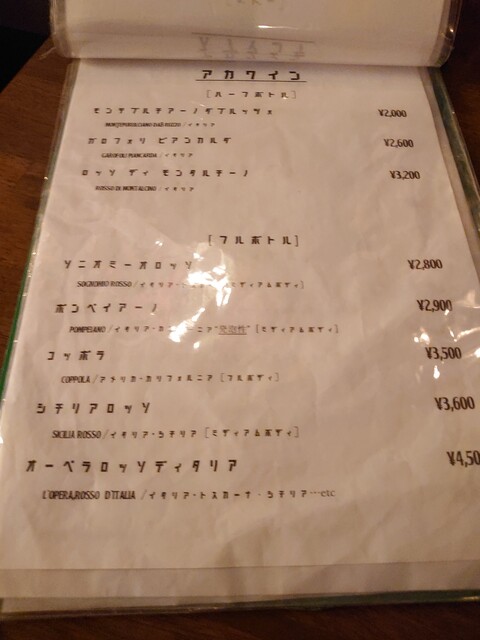 アカワイン
[ハーフボトル]
モンテプルチアーノダブルッツォ ¥2,000
MONTEPULCIANO D'ABRUZZO / イタリア
ガロフォリ ピアンカルダ ¥2,600
GAROFOLI PIANCARDA / イタリア
ロッソ ディ モンタルチーノ ¥3,200
ROSSO DI MONTALCINO / イタリア
[フルボトル]
ソニオミーオロッソ ¥2,800
SOGNOMIO ROSSO / イタリア ミディアムボディ]
ポンペイアーノ ¥2,900
POMPEIANO / イタリア・カ ニア"発泡性" [ミディアムボディ]
コッポラ ¥3,500
COPPOLA / アメリカ・カリフォルニア [フルボディ]
シチリアロッソ ¥3,600
SICILIA ROSSO / イタリア・シチリア [ミディアムボディ]
オーペラロッソディタリア ¥4,50
L'OPERA,ROSSO D'ITALIA / イタリア・トスカーナ・シチリア…etc